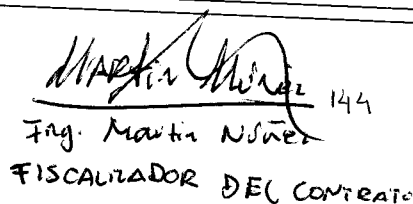 Martin Núñez 144
Ing. Martin Núñez
FISCALIZADOR DEL CONTRATO